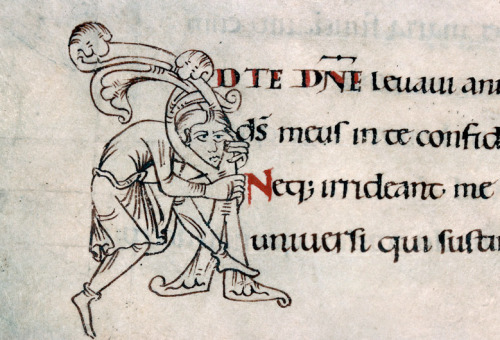 AD TE DN̄E levavi ani
dſ̄ meuſ in te confid
Neq; irrideant me
univerſi qui ſuſtin